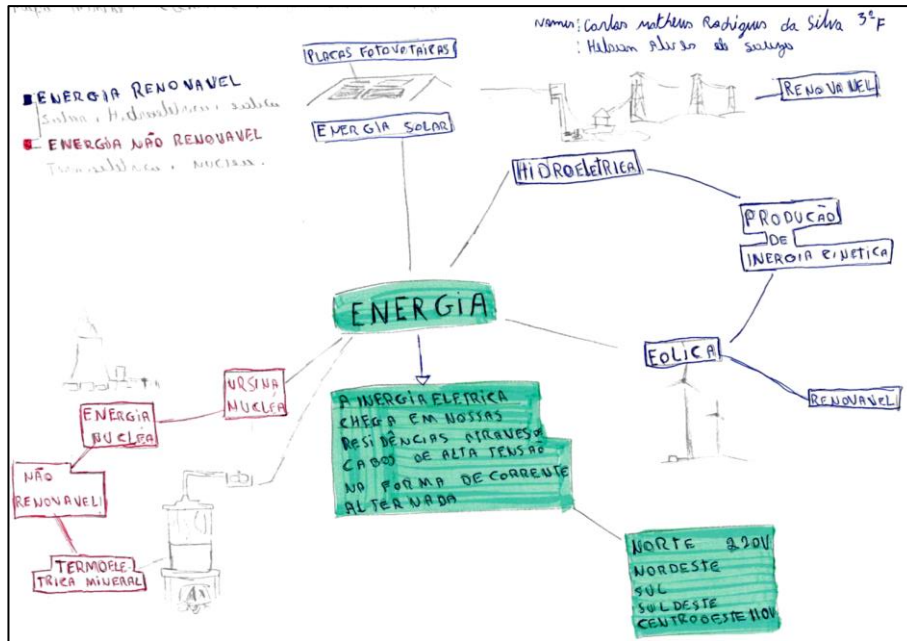 Nomes: Carlos Matheus Rodrigues da Silva 3ºF
: Alves de
PLACAS FOTOVOTAICAS
ENERGIA RENOVAVEL
Solar, Hidroeletrica, eolica
ENERGIA NÃO RENOVAVEL
NUCLEA.
ENERGIA SOLAR
RENOVAVEL
HIDROELETRICA
PRODUCÃO
DE
INERGIA CINETICA
ENERGIA
EOLICA
RENOVAVEL
URSINA
NUCLÉA
ENERGIA
NUCLÉA
NÃO
RENOVAVEL
TERMOELE-
TRICA MINERAL
A INERGIA ELETRICA
CHEGA EM NOSSAS
RESIDÊNCIAS ATRAVES
CABOS DE ALTA TENSÃO
NA FORMA DE CORRENTE
ALTERNADA
NORTE 220V
NORDESTE
SUL
SULDESTE
CENTROOESTE 110V